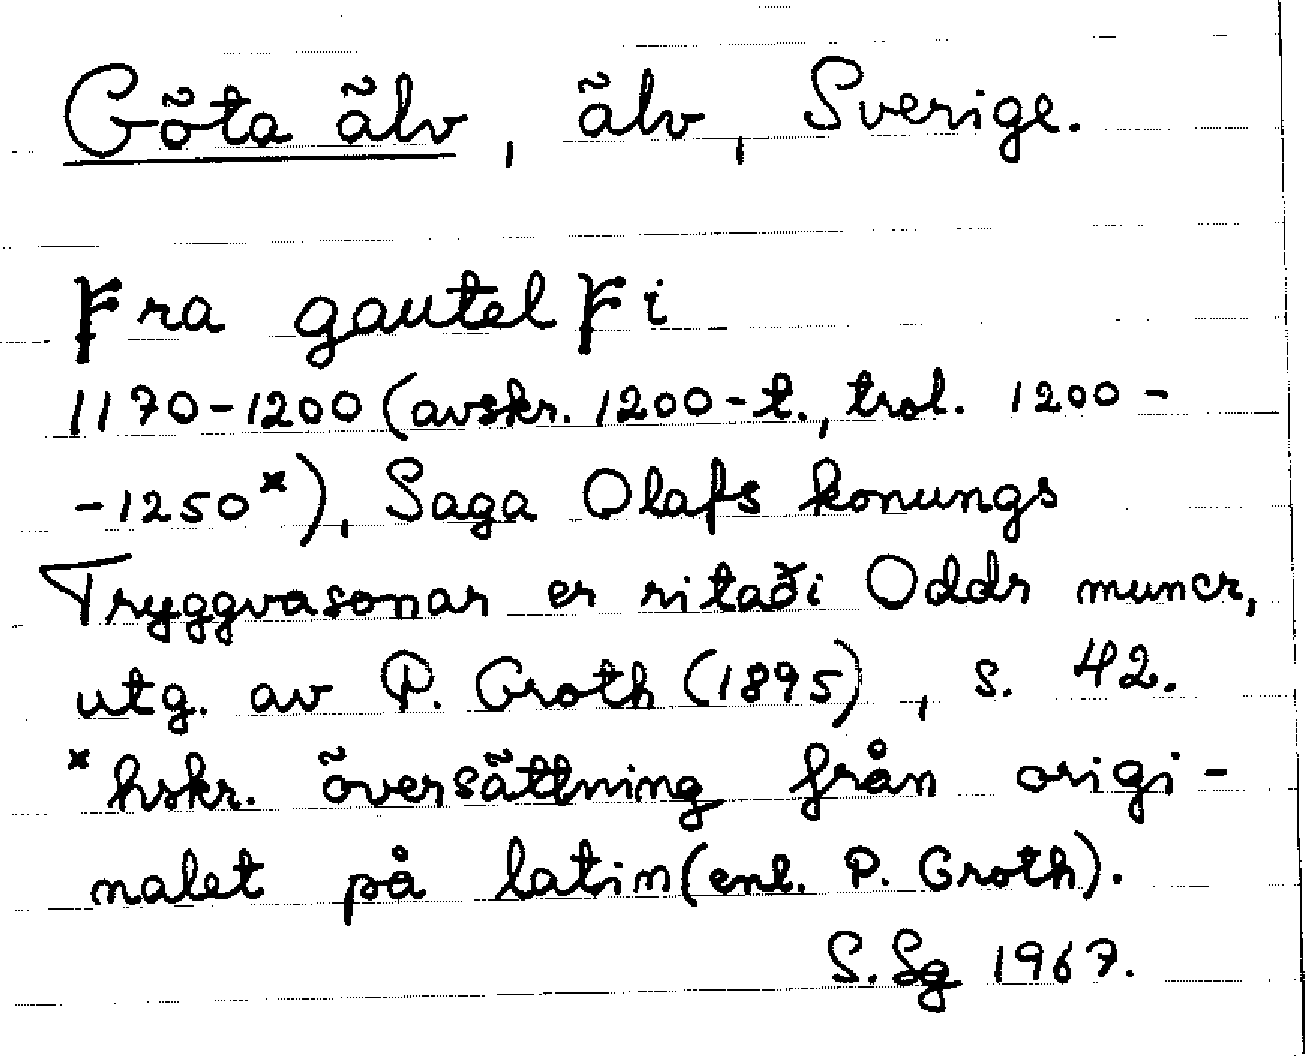 Göta älv, älv, Sverige.
Fra gautelfi
1170-1200 (avskr. 1200-t., trol. 1200-
-1250*), Saga Olafs konungs
Tryggvasonar er ritaði Oddr muncr,
utg. av P. Groth (1895), s. 42.
*hskr. översättning från origi-
nalet på latin (enl. P. Groth).
S. Sg 1967.